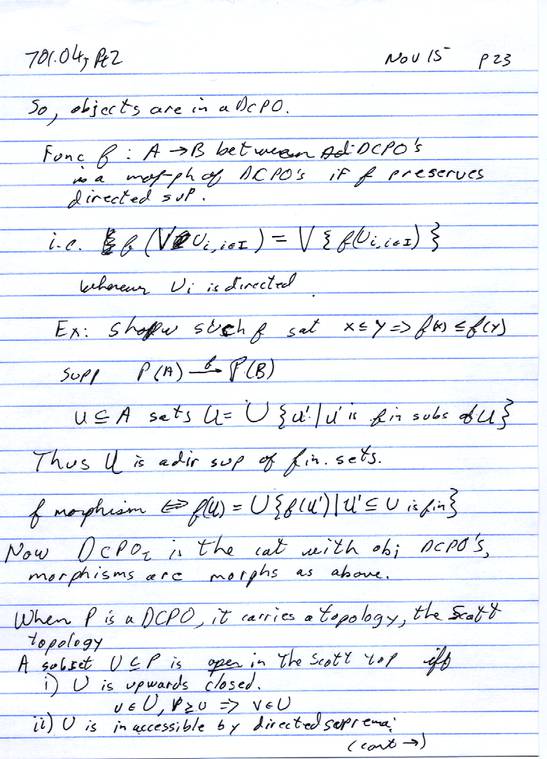 701.04, Pt2 Nov 15 p 23
So, objects are in a DCPO.
Func f : A → B between DCPO's
is a morph of DCPO's if f preserves
directed sup.
i.e. f (V Ui, i∈I) = V { f(Ui, i∈I) }
whenever Ui is directed.
Ex: show such f sat x ≤ y => f(x) ≤ f(y)
Supp P(A) f→ P(B)
U ⊆ A sets U = ∪ {u' | u' is fin subs of U}
Thus U is a dir sup of fin. sets.
f morphism <=> f(U) = ∪{f(u') | u' ⊆ U is fin}
Now DCPO is the cat with obj DCPO's,
morphisms are morphs as above.
When P is a DCPO, it carries a topology, the Scott
topology
A subset U ⊆ P is open in the Scott top iff
i) U is upwards closed.
u ∈ U, v ≥ u => v ∈ U
ii) U is inaccessible by directed suprema:
(cont →)